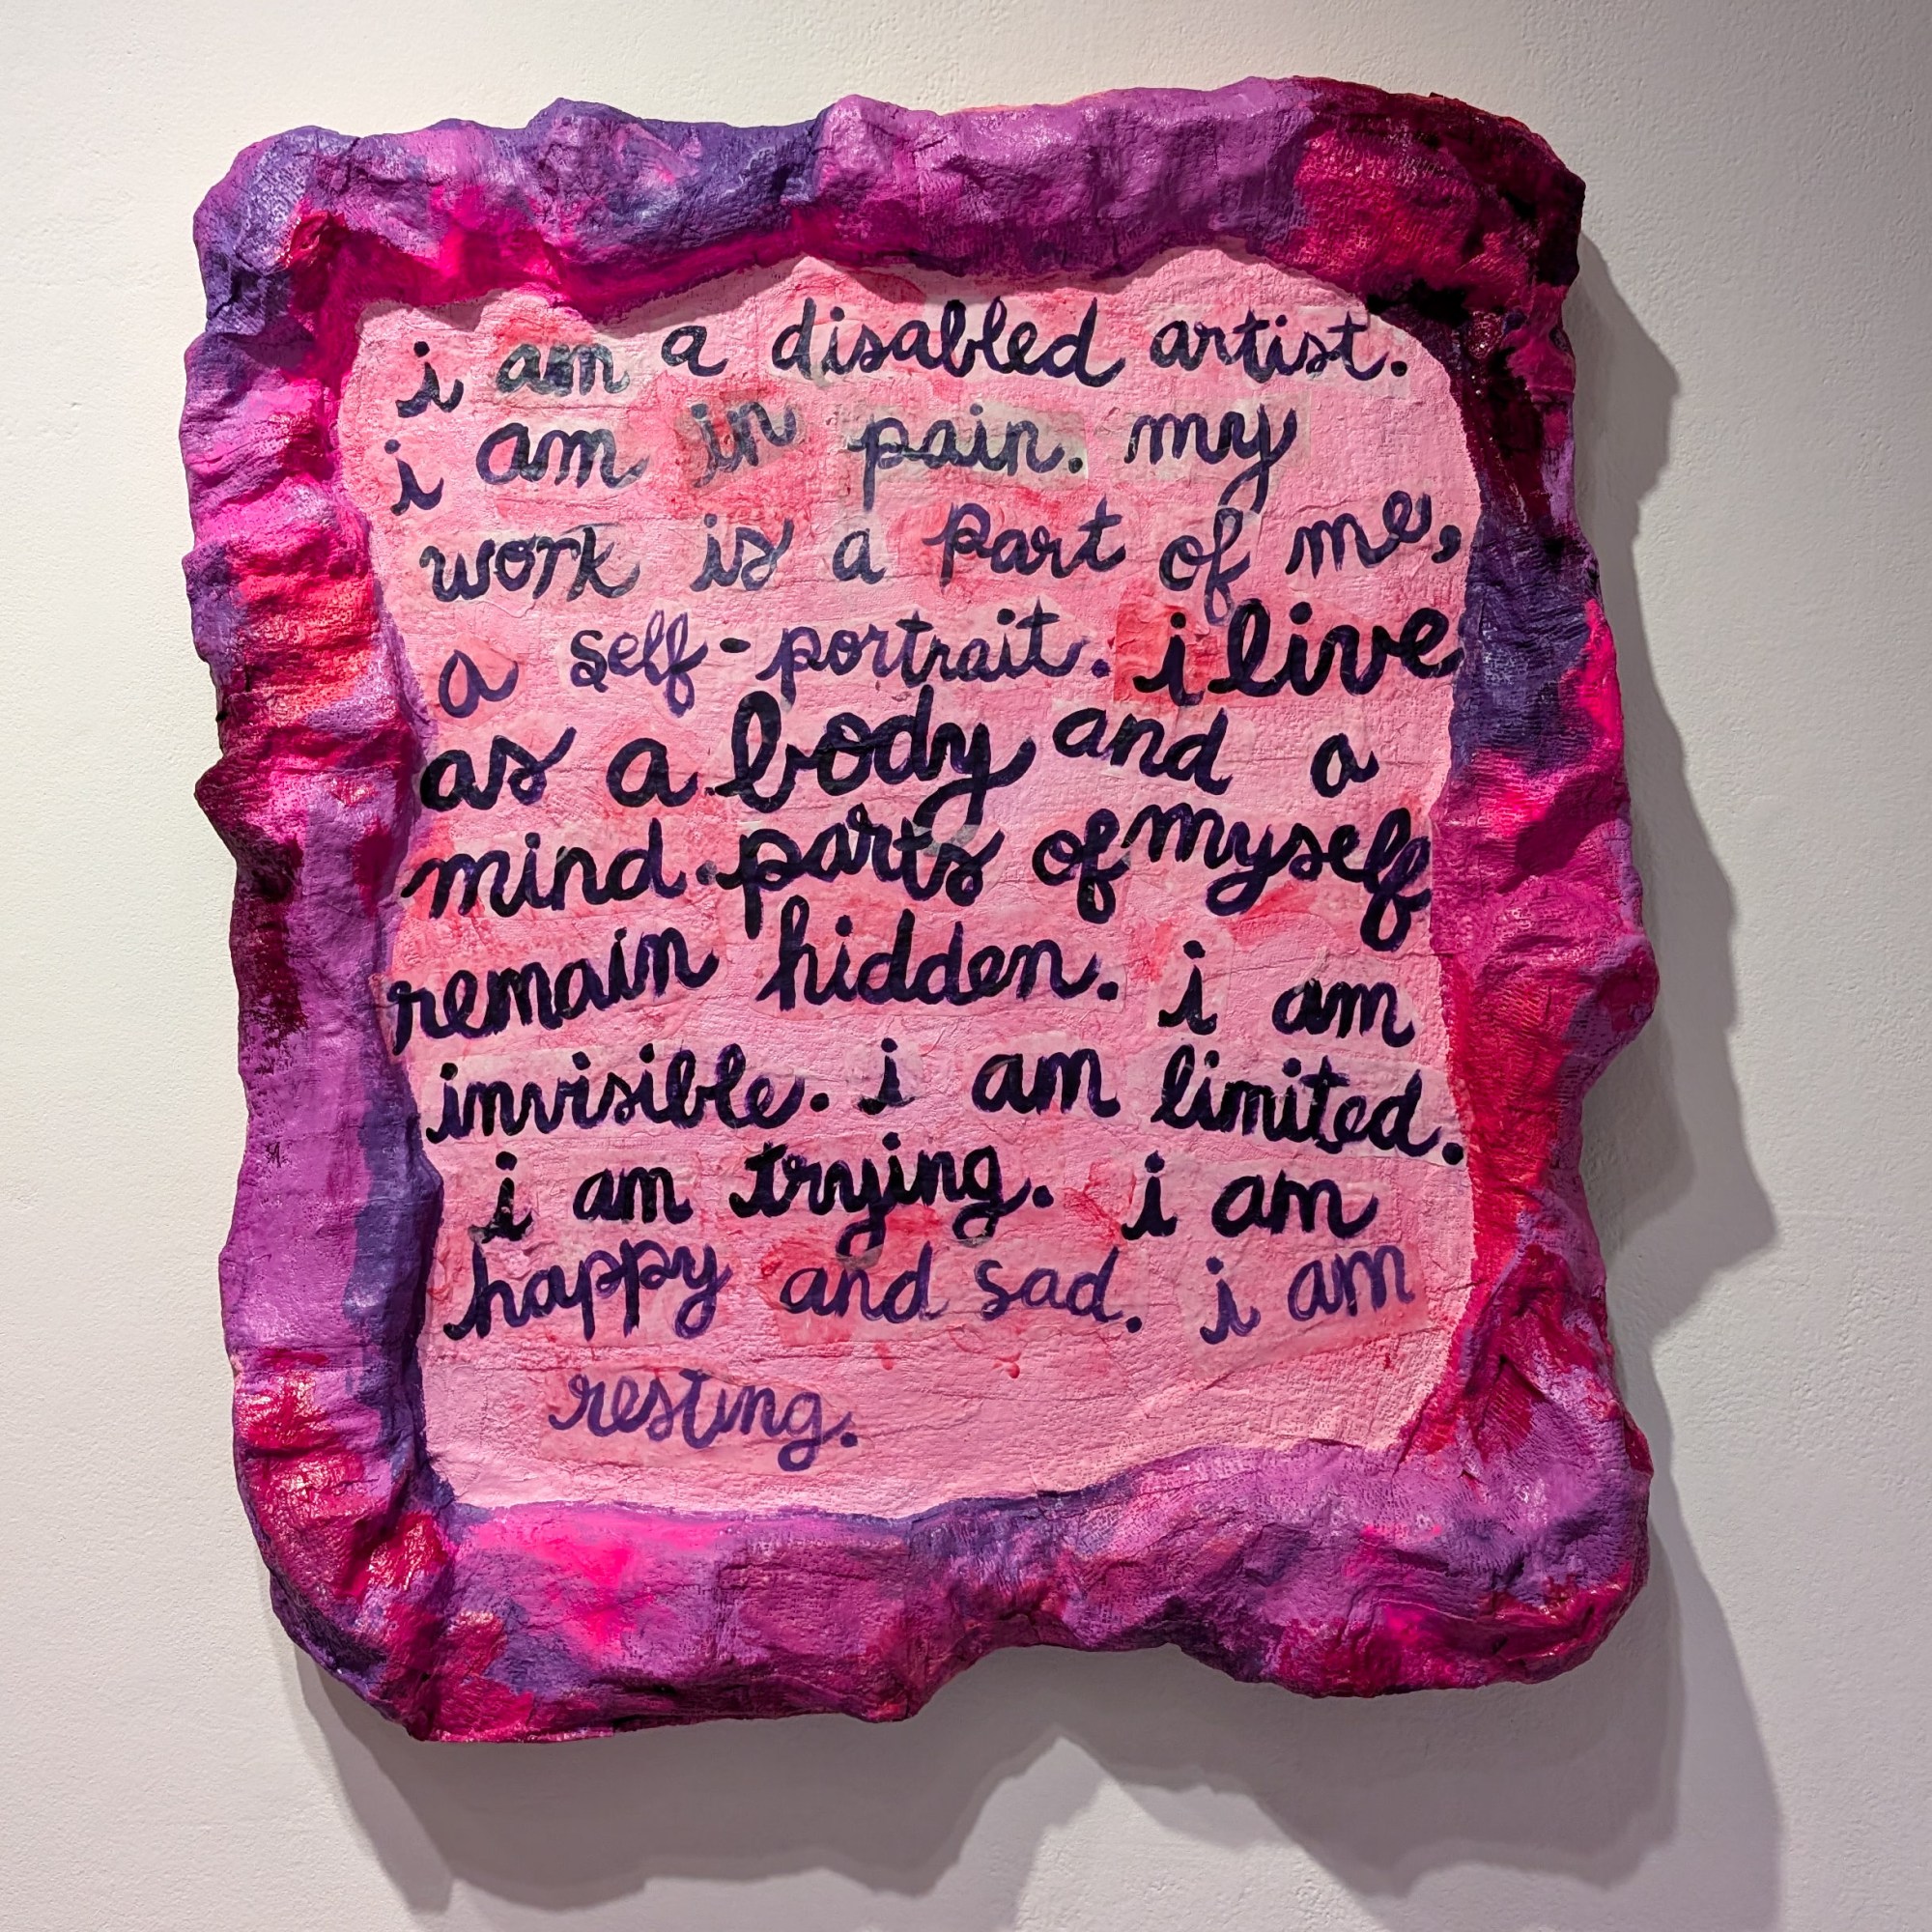 i am a disabled artist.
i am in pain. my
work is a part of me,
a self-portrait. i live
as a body and a
mind. parts of myself
remain hidden. i am
invisible. i am limited.
i am trying. i am
happy and sad. i am
resting.